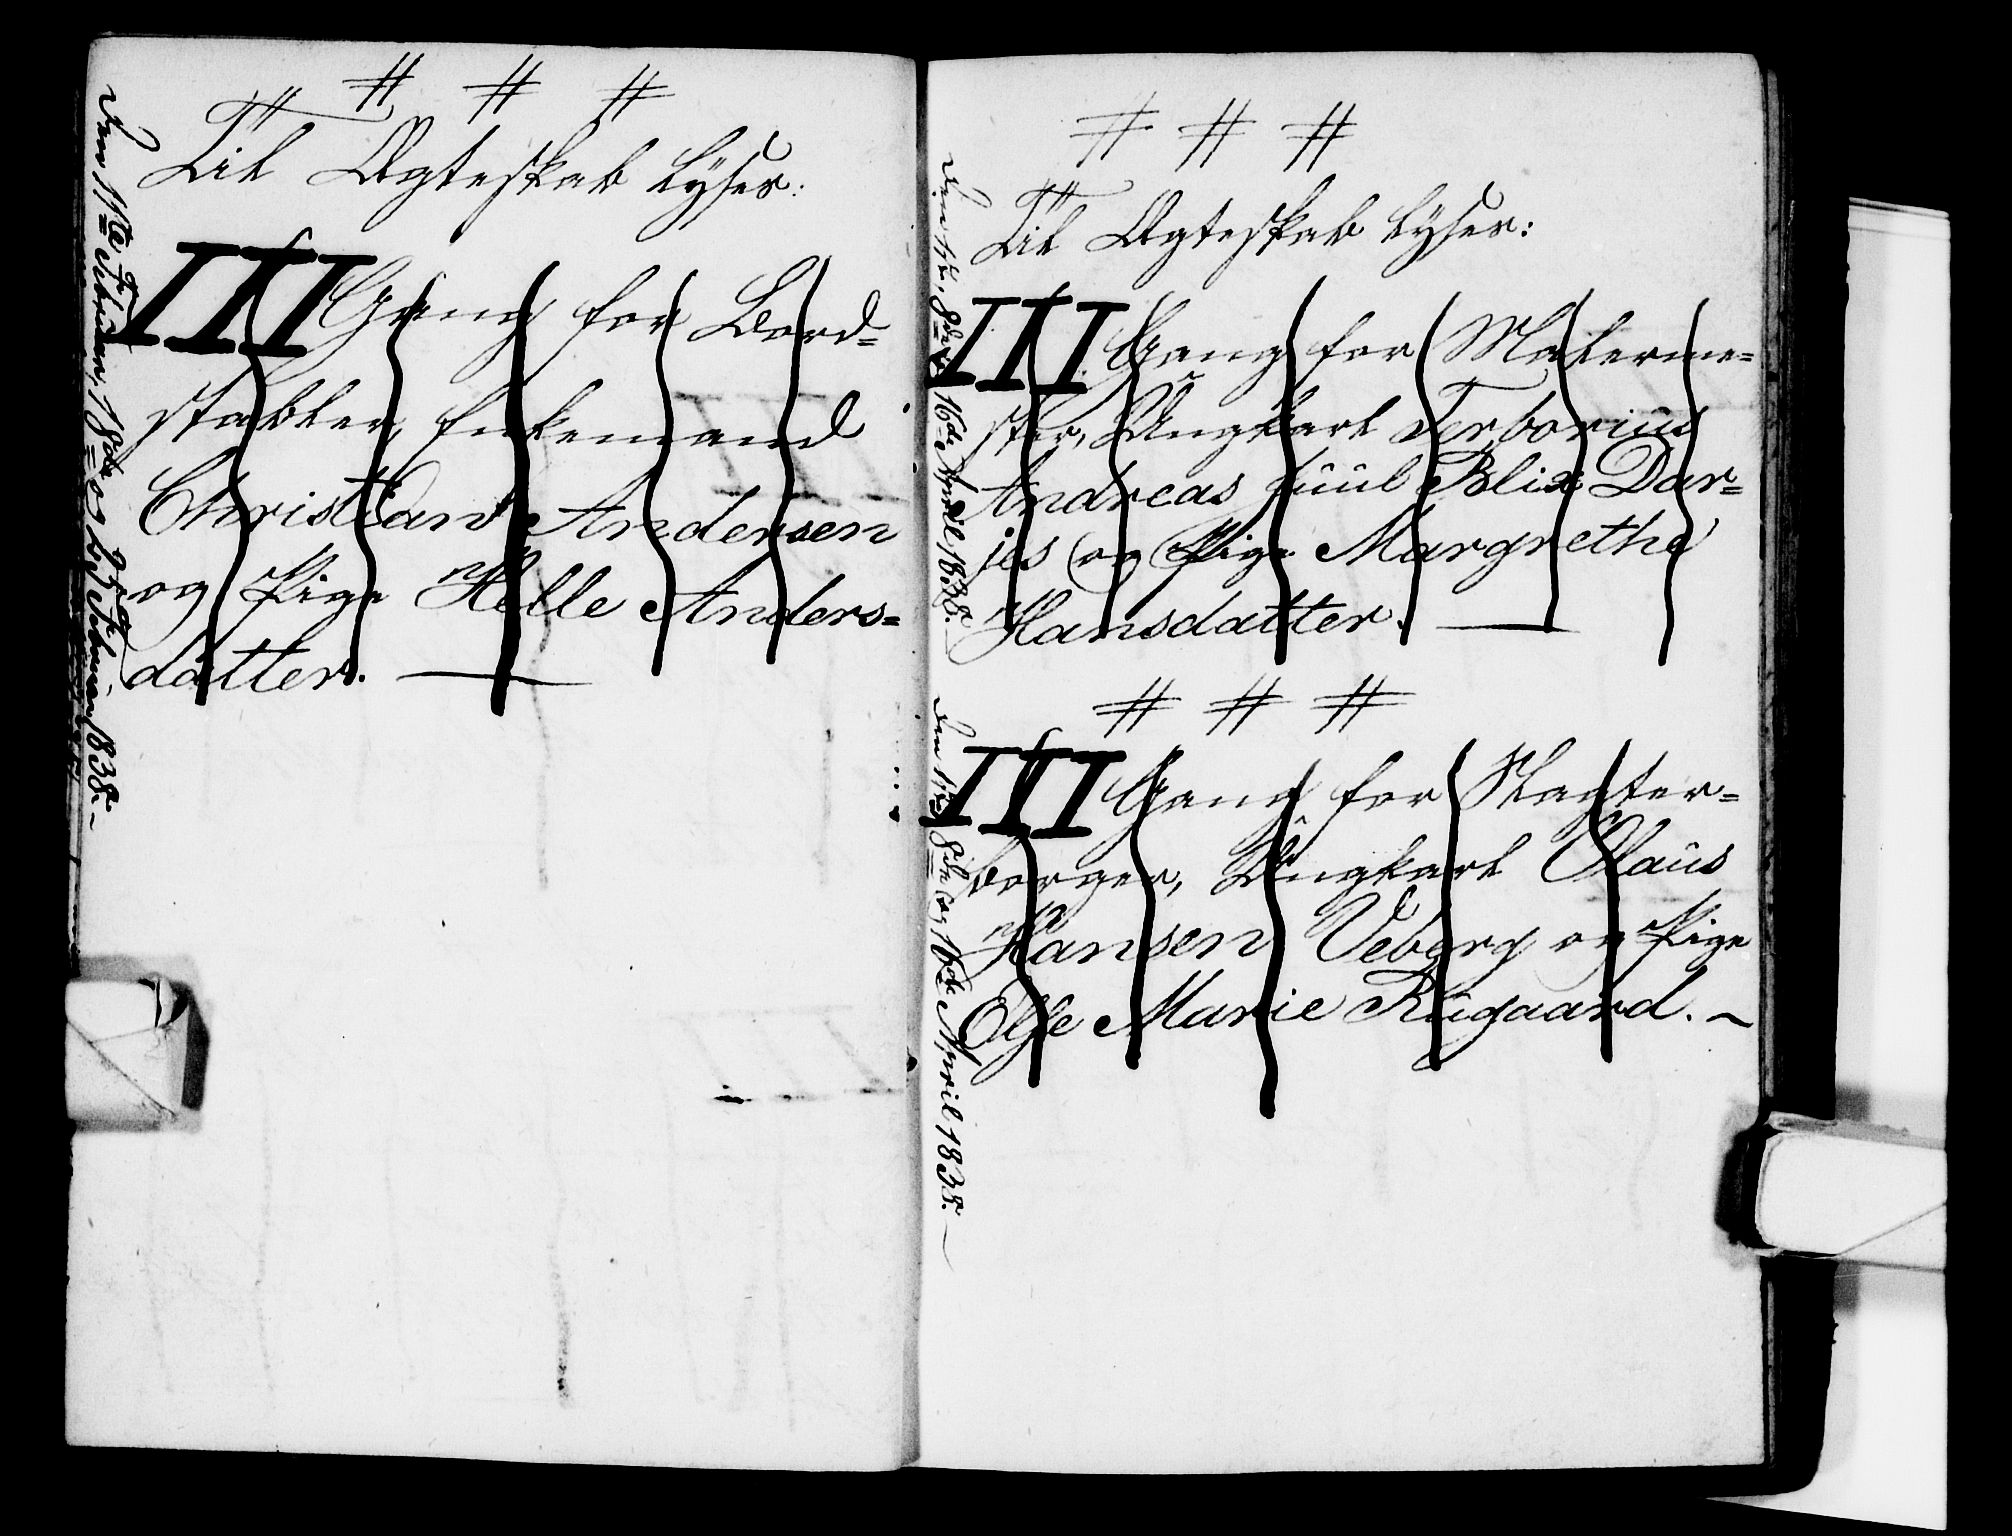 # # #
Til Ægteskab lyses:
III Gang for Bord=
stabler, Enkemand
Christian Andersen
og Pige Helle Anders=
datter.
Den 11te Februar, 18de og 25de Februar 1838.
# # #
Til Ægteskab lyses:
III Gang for Malerme=
ster, Ungkarl Terborius
Andreas Juul Blix Dar=
jes og Pige Margrethe
Hansdatter.
Den 1ste, 8de og 16de April 1838.
# # #
III Gang for Slagter=
borger, Ungkarl Olaus
Hansen Veberg og Pige
Else Marie Rugaard.
Den 1ste, 8de og 16de April 1838.